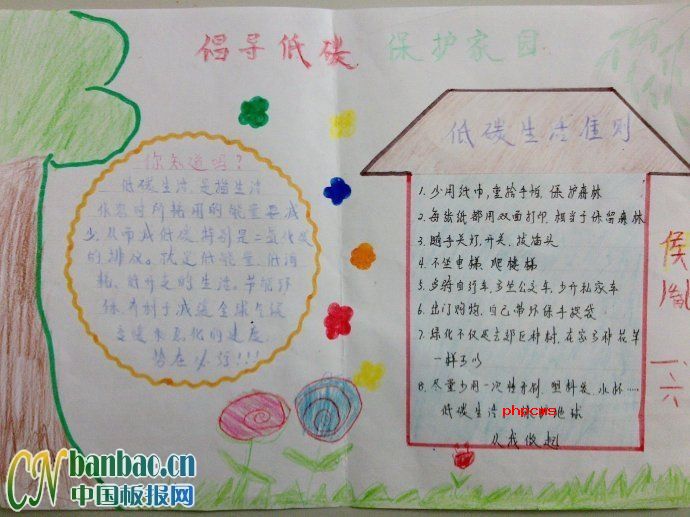 倡导低碳 保护家园
你知道吗?
低碳生活,是指生活
作息时所耗用的能量要减
少,从而减低碳,特别是二氧化碳
的排放。就是低能量、低消
耗、低开支的生活。节能环
保,有利于减缓全球气候
变暖和恶化的速度
势在必行!!!
低碳生活准则
1. 少用纸巾,重拾手帕,保护森林
2. 每张纸都用双面打印,相当于保留森林
3. 随手关灯、开关、拔插头
4. 不坐电梯、爬楼梯
5. 多骑自行车、多坐公交车、少开私家车
6. 出门购物,自己带环保手提袋
7. 绿化不仅是去郊区种树,在家多种花草
一样可以
8. 尽量少用一次性牙刷、塑料袋、水杯……
低碳生活 地球
从我做起
侯
一、六
phpcms
CN banbao.cn
中国板报网